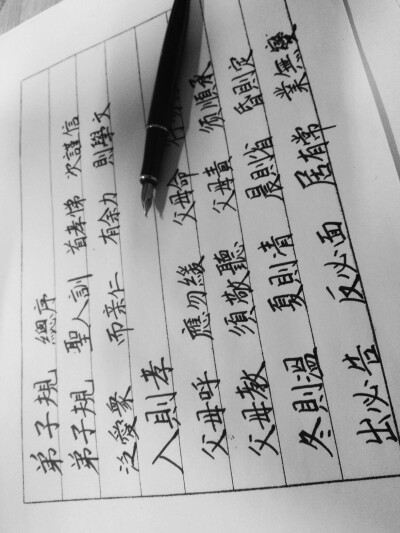 弟子規 總序
弟子規 聖人訓 首孝悌 次謹信
泛愛眾 而亲仁 有余力 則學文
入則孝
父母呼 應勿緩 父母命
父母教 須敬聽 父母責 须順承
冬則溫 夏則清 晨則省 昏則定
出必告 反必面 居有常 業無變